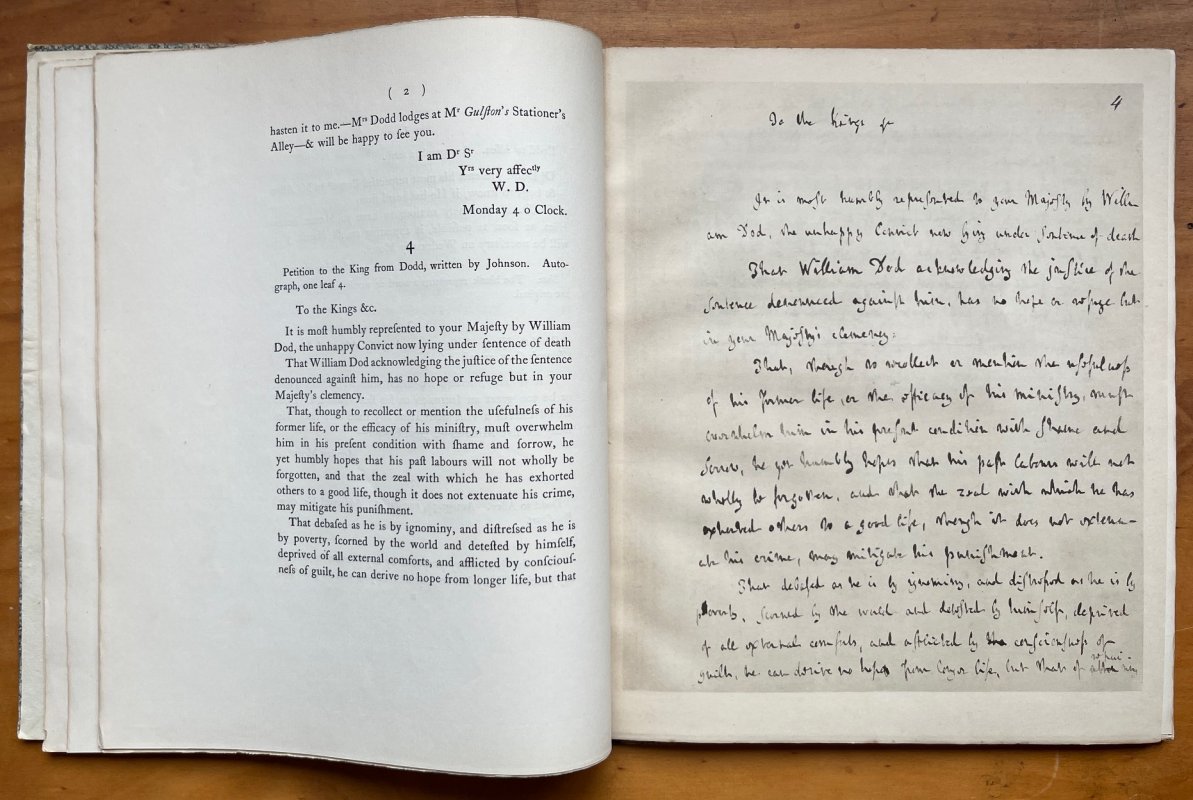 ( 2 )
haſten it to me.—Mʳˢ Dodd lodges at Mʳ Gulſton's Stationer's
Alley—& will be happy to ſee you.
I am Dʳ Sʳ
Yʳˢ very affecᵗˡʸ
W. D.
Monday 4 o Clock.
4
Petition to the King from Dodd, written by Johnson. Auto-
graph, one leaf 4.
To the Kings &c.
It is moſt humbly repreſented to your Majeſty by William
Dod, the unhappy Convict now lying under ſentence of death
That William Dod acknowledging the juſtice of the ſentence
denounced againſt him, has no hope or refuge but in your
Majeſty's clemency.
That, though to recollect or mention the uſefulneſs of his
former life, or the efficacy of his miniſtry, muſt overwhelm
him in his preſent condition with ſhame and ſorrow, he
yet humbly hopes that his paſt labours will not wholly be
forgotten, and that the zeal with which he has exhorted
others to a good life, though it does not extenuate his crime,
may mitigate his puniſhment.
That debaſed as he is by ignominy, and diſtreſſed as he is
by poverty, ſcorned by the world and deteſted by himſelf,
deprived of all external comforts, and afflicted by conſciouſ-
neſs of guilt, he can derive no hope from longer life, but that
4
To the Kings &c
It is moſt humbly repreſented to your Majeſty by Willi
am Dod, the unhappy Convict now lying under ſentence of death
That William Dod acknowledging the juſtice of the
ſentence denounced againſt him, has no hope or refuge but
in your Majeſty's clemency.
That, though to recollect or mention the uſefulneſs
of his former life, or the efficacy of his miniſtry, muſt
overwhelm him in his preſent condition with ſhame and
ſorrow, he yet humbly hopes that his paſt labours will not
wholly be forgotten, and that the zeal with which he has
exhorted others to a good life, though it does not extenu-
ate his crime, may mitigate his puniſhment.
That debaſed as he is by ignominy, and diſtreſſed as he is by
poverty, ſcorned by the world and deteſted by himſelf, deprived
of all external comforts, and afflicted by conſciouſneſs of
guilt, he can derive no hope from longer life, but that of